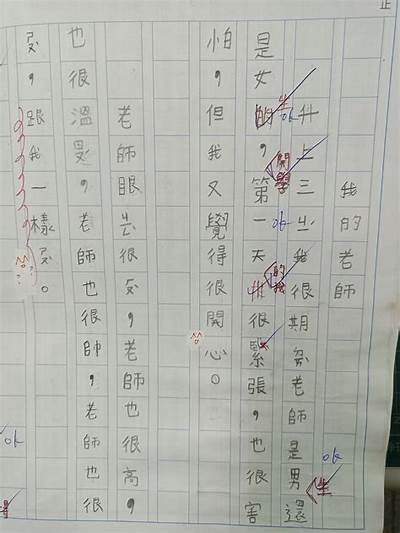 我的老師
升上三我很期老師是男還
是女的，第一天很緊張，也很害
怕，但我又覺得很開心。
老師眼很，老師也很高，
也很溫，老師也很帥，老師也很
，跟我一樣。
生
開學
的我
生
ok
ok
ok
ok
正